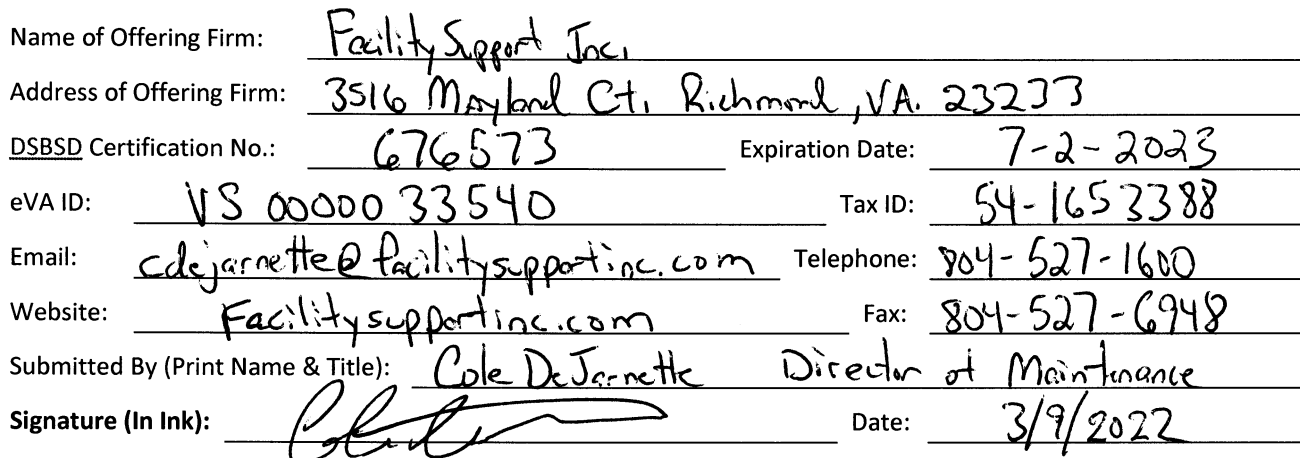 Name of Offering Firm: Facility Support Inc.
Address of Offering Firm: 3516 Mayland Ct. Richmond, VA. 23233
DSBSD Certification No.: 676573 Expiration Date: 7-2-2023
eVA ID: VS 00000 33540 Tax ID: 54-1653388
Email: cdejarnette@facilitysupportinc.com Telephone: 804-527-1600
Website: Facilitysupportinc.com Fax: 804-527-6948
Submitted By (Print Name & Title): Cole DeJarnette Director of Maintenance
Signature (In Ink): Date: 3/9/2022